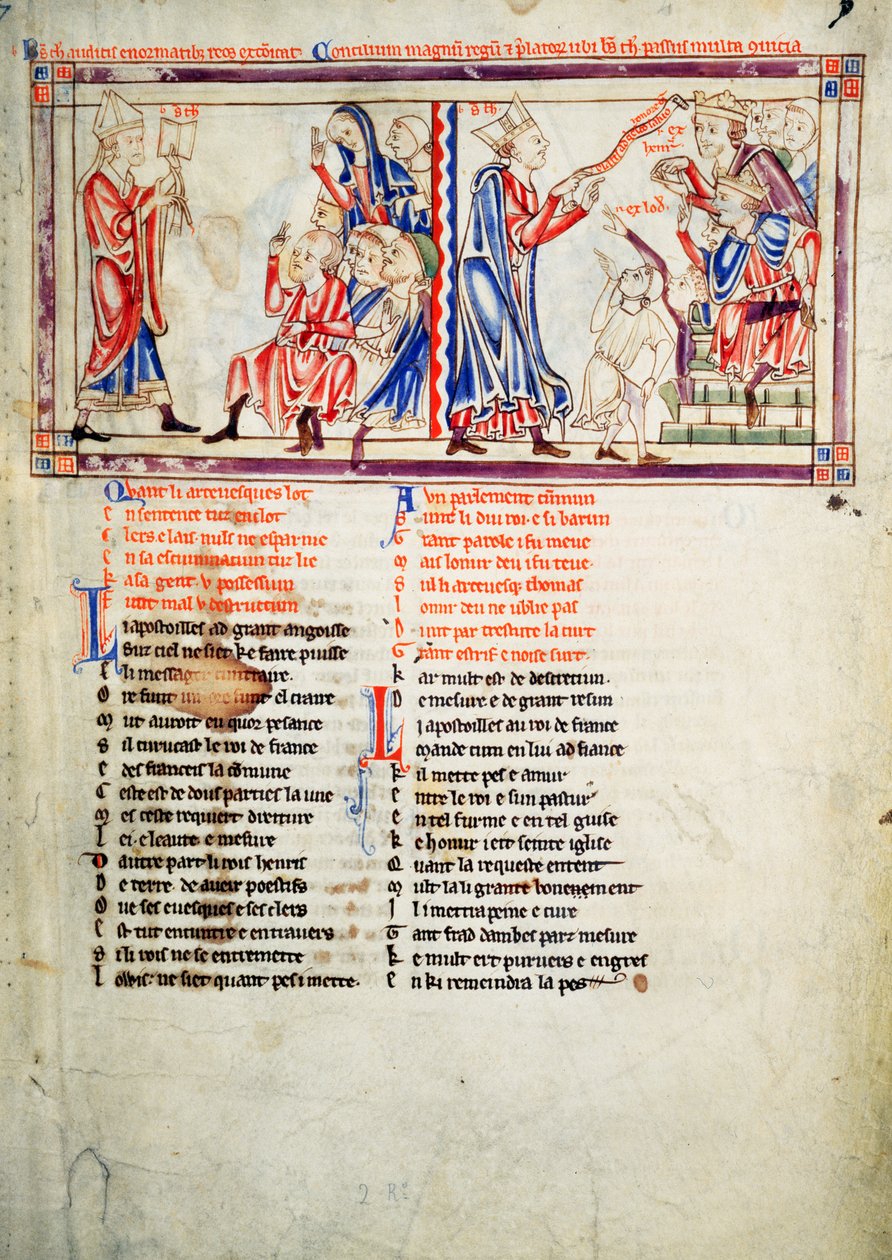 Bs th auditis enormatibz reos excōicat Concilium magnū regū & p̄latoꝝ ubi bs th. passus multa 9uicia
bs th
bs th
ex henr̄
ex lod.
Quant li arcevesques lot
En sentence tuz enclot
Clers e lais nuls ne esparnie
En sa escuminaciun tuz lie
Ka sa gent. u possessiun
Funt mal u destructiun
Li apostoilles ad grant angoisse
Suz ciel ne siet ke faire puisse
Li messager
Ore funt el claire
Mut auroit eu quor pesance
Sil curucast le roi de france
E des franceis la cōmune
Ceste est de dous parties la une
Mes ceste requert dreiture
Lei. e leaute. e mesure
Dautre part li rois henris
De terre. de aveir poestifs
Oue ses evesques e ses clers
Est tut encuntre e en travers
Si li rois ne se entremette
Lowis: ne siet quant pes i mette.
A un parlement cūmun
Sunt li dui roi. e si barun
Grant parole i fu meue
Mais lonur deu i fu teue.
Sul li arcevesqz thomas
Lonur deu ne ublie pas
Dunt par trestute la curt
Grant estrif e noise surt.
Kar mult est de descretiun.
De mesure. e de grant resun
Li apostoilles au roi de france
Mande cum en lui ad fiance
Kil mette pes e amur
Entre le roi e sun pastur
En tel furme e en tel guise
Ke honur i eit seinte iglise
Quant la requeste entent
Mult la li grante bonement
Il i mettra peine e cure
Tant frad dambes parz mesure
Ke mult ert purvers e engres
En ki remeindra la pes
2 Rº